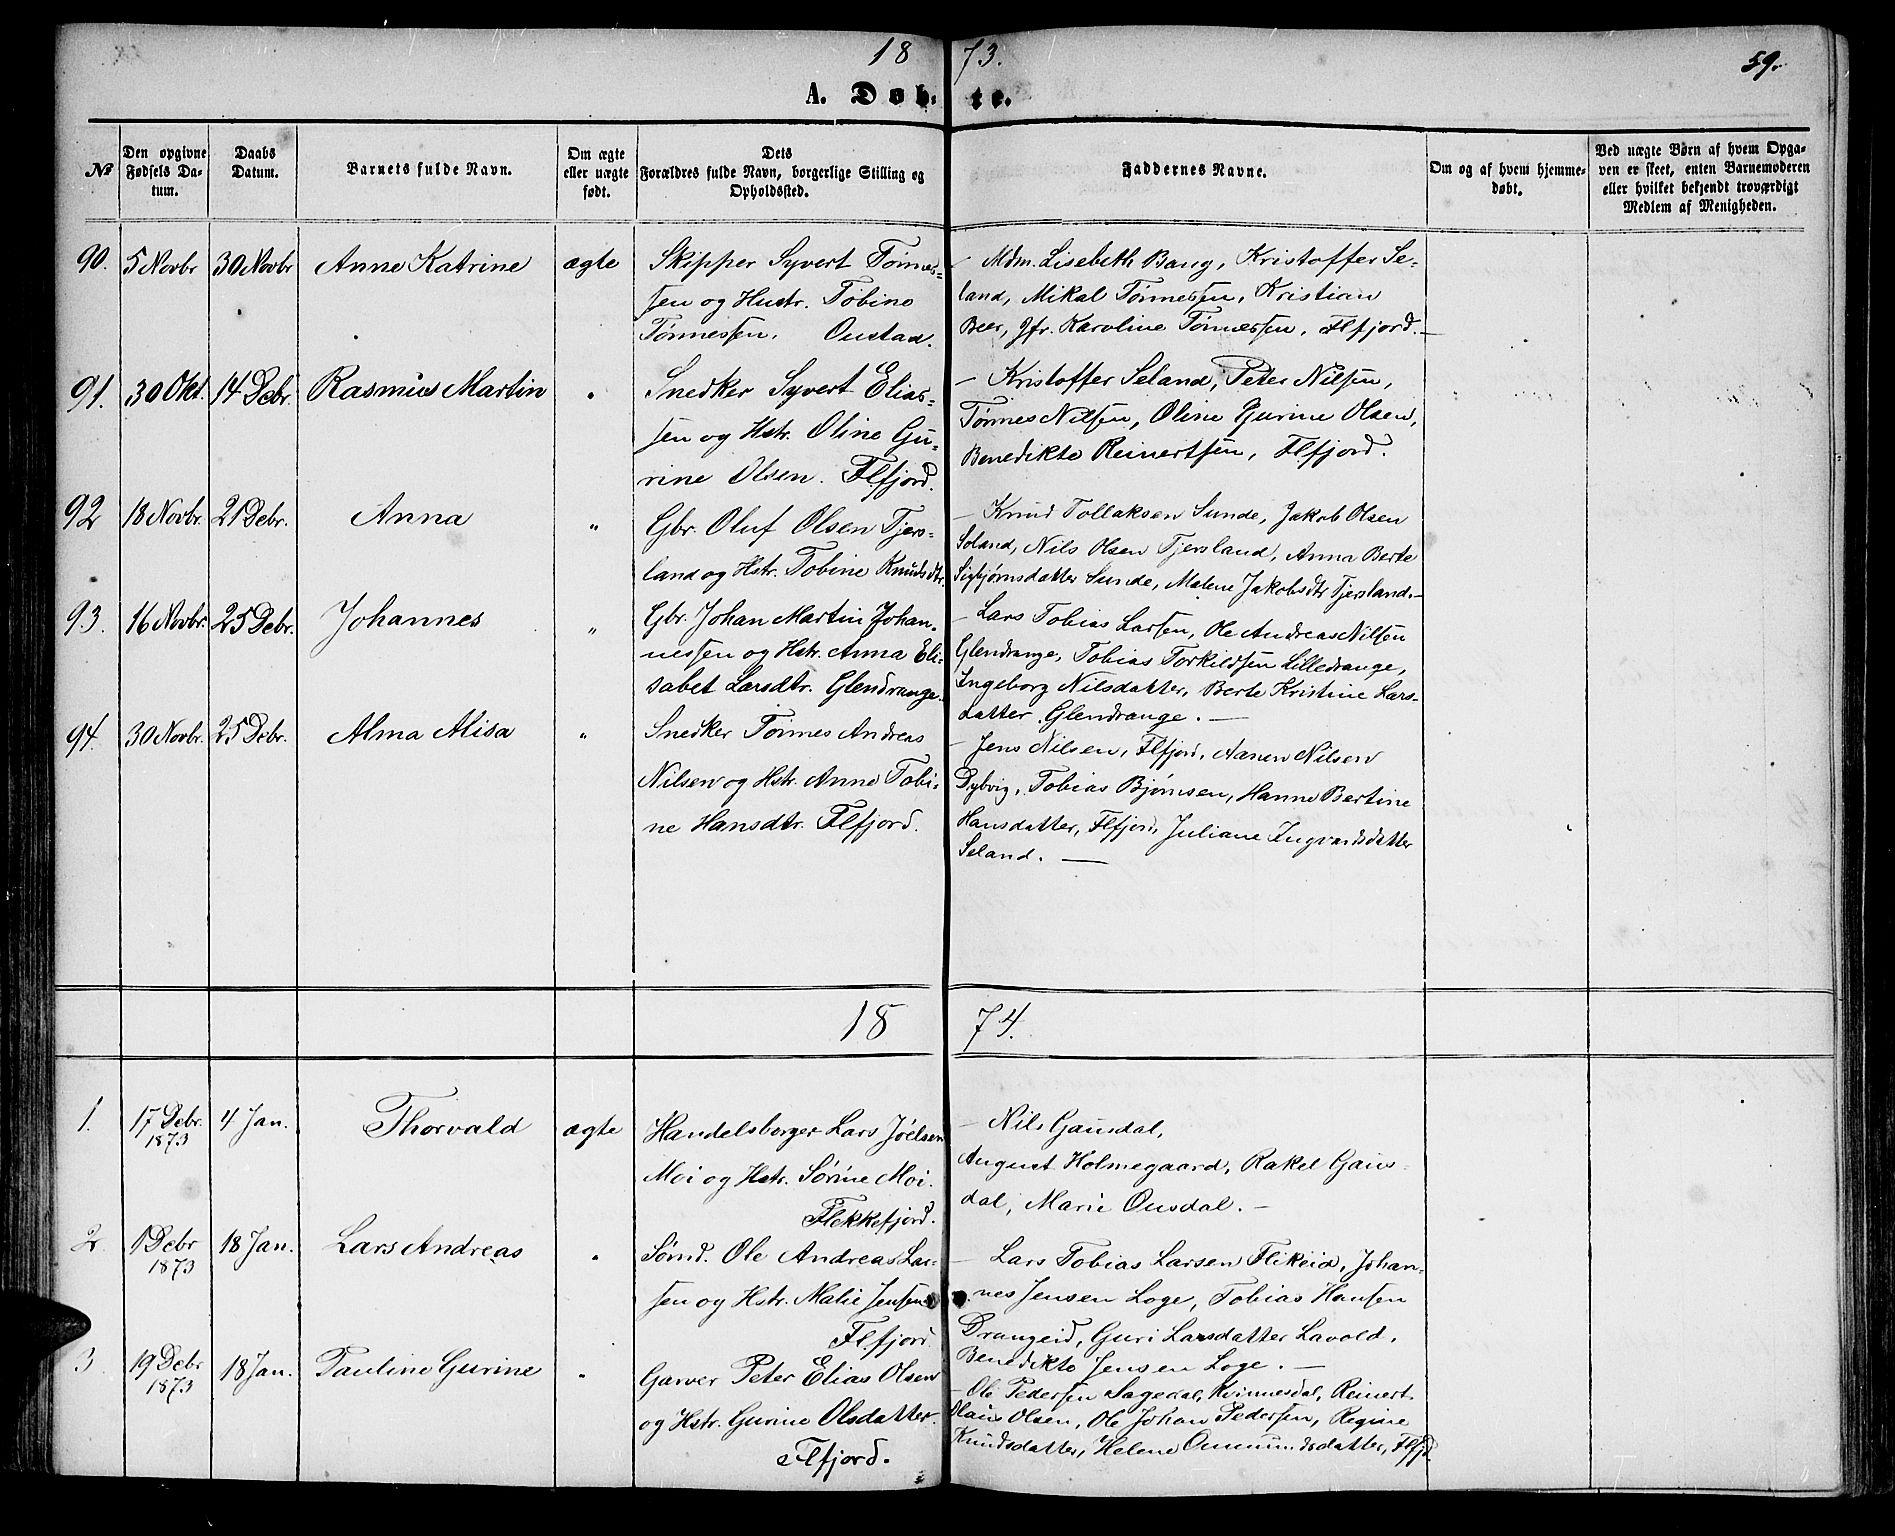 18 73. 59.
A. Døb- te.
No
Den opgivne Fødsels Datum.
Daabs Datum.
Barnets fulde Navn.
Om ægte eller uægte født.
Dets Forældres fulde Navn, borgerlige Stilling og Opholdssted.
Faddernes Navne.
Om og af hvem hjemmedøbt.
Ved uægte Børn af hvem Opgaven er skeet, enten Barnemoderen eller hvilket bekjendt troværdigt Medlem af Menigheden.
90. 5 Novbr 30 Novbr Anne Katrine ægte
Skipper Syvert Tønnes-
sen og Hustr. Tobine
Tønnessen. Oustad.
— Mdm. Lisebeth Bang, Kristoffer Se-
land, Mikal Tønnessen, Kristian
Beer, Jfr. Karoline Tønnessen, Flfjord.—
91. 30 Okt. 14 Debr. Rasmus Martin "
Snedker Syvert Elias-
sen og Hstr. Oline Gu-
rine Olsen. Flfjord.
— Kristoffer Seland, Peter Nilsen,
Tønnes Nilsen, Oline Gurine Olsen,
Benedikte Reinertsen, Flfjord.
92 18 Novbr. 21 Debr. Anna "
Gbr. Oluf Olsen Tjers-
land og Hstr. Tobine Knudsdtr.
— Knud Tollaksen Sunde, Jakob Olsen
Soland, Nils Olsen Tjersland, Anna Berte
Sigbjørnsdatter Sunde, Malene Jakobsdtr Tjersland.—
93. 16 Novbr. 25 Debr. Johannes "
Gbr. Johan Martin Johan-
nessen og Hstr. Anna Eli-
sabet Larsdtr. Glendrange.
— Lars Tobias Larsen, Ole Andreas Nilsen
Glendrange, Tobias Torkildsen Lilledrange,
Ingeborg Nilsdatter, Berte Kristine Lars-
datter Glendrange. —
94. 30 Novbr. 25 Debr. Alma Alisa "
Snedker Tønnes Andreas
Nilsen og Hstr. Anne Tobi-
ne Hansdtr. Flfjord.
— Jens Nilsen, Flfjord, Aanen Nilsen
Dybvig, Tobias Bjørnsen, Hanne Bertine
Hansdatter, Flfjord, Juliane Ingvardsdatter
Seland. —
18 74.
1. 17 Debr. 1873 4 Jan. Thorvald ægte
Handelsborger Lars Jóelsen
Moi og Hstr. Sørine Moi.
Flekkefjord.
— Nils Gausdal,
August Holmegaard, Rakel Gaus-
dal, Marie Ousdal. —
2. 1 Debr 1873 18 Jan. Lars Andreas "
Sømd. Ole Andreas Lar-
sen og Hstr. Malie Jensen
Flfjord.
— Lars Tobias Larsen Flikeid, Johan-
nes Jensen Loge, Tobias Hansen
Drangeid, Guri Larsdatter Lavold,
Benedikte Jensen Loge. —
3 19 Debr 1873 18 Jan. Pauline Gurine "
Garver Peter Elias Olsen
og Hstr. Gurine Olsdatter.
Flfjord.
— Ole Pedersen Sagedal, Kvinnesdal, Reinert
Olaus Olsen, Ole Johan Pedersen, Regine
Knudsdatter, Helene Ommundsdatter, Flfjd.